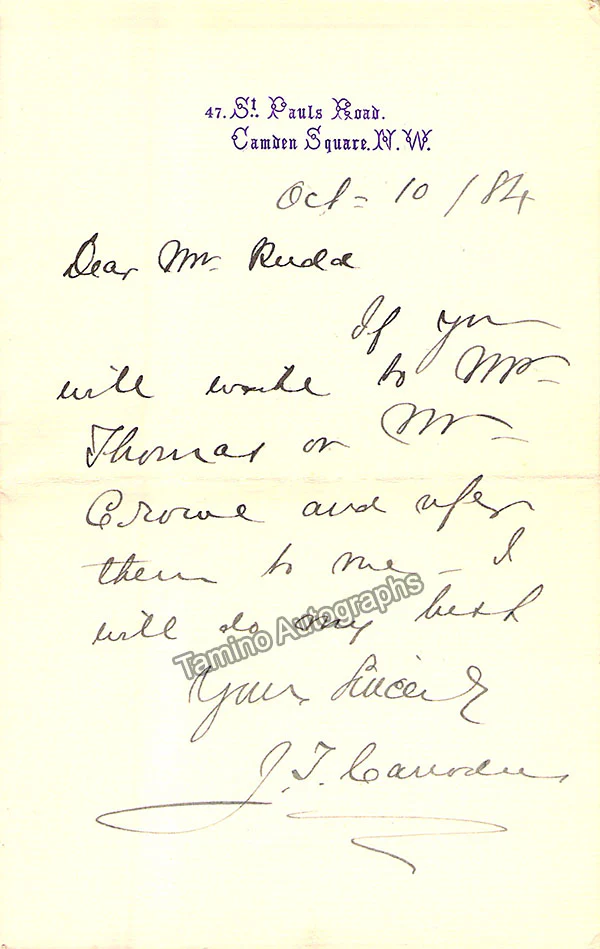 47. St. Pauls Road.
Camden Square. N. W.
Oct - 10 / 84
Dear Mr. Rudd
If you
will write to Mr
Thomas or Mr
Crowe and refer
them to me - I
will do my best
Yours Sincerely
J. T. Carrodus
Tamino Autographs